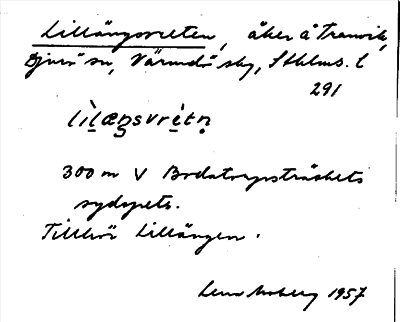 Lillängsvreten, åker å Tranvik,
Djurö sn, Värmdö skg, Sthlms. l
291
lìlæŋsvrètṇ
300 m V Bredatorpsträskets
sydspets.
Tillhör Lillängen.
Lena Moberg 1957